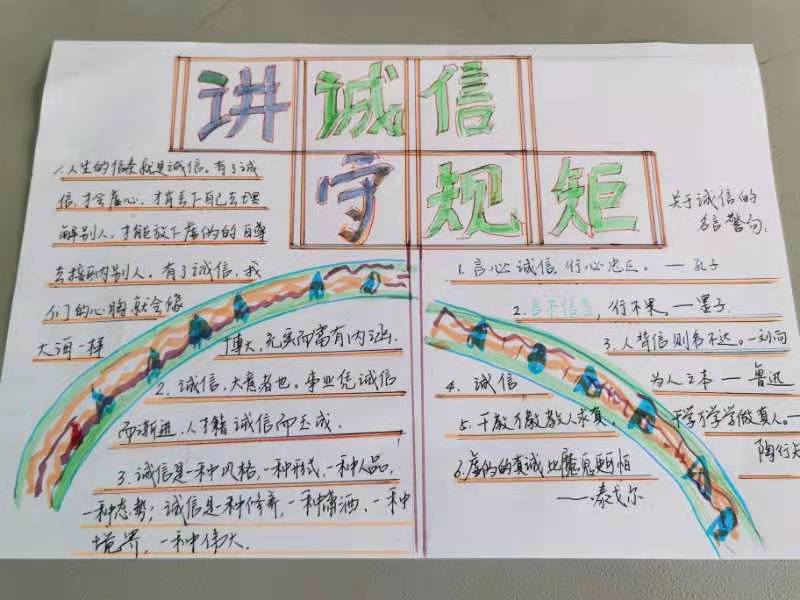 讲诚信
守规矩
1. 人生的信条就是诚信。有了诚
信,才会虚心,才肯丢下自己去理
解别人,才能放下虚伪的自尊
去接纳别人。有了诚信,我
们的心胸就会像
大海一样
博大,充实而富有内涵.
2. 诚信,大意者也。事业凭诚信
而渐进,人才籍诚信而玉成.
3. 诚信是一种风格,一种形式,一种人品,
一种态势;诚信是一种修养,一种潇洒、一种
境界,一种伟大.
关于诚信的
名言警句:
1. 言必诚信,行必忠正。—孔子
2. 言不信者,行不果。—墨子.
3. 人背信则名不达。—刘向
4. 诚信 为人之本 —鲁迅
5. 千教万教教人求真, 千学万学学做真人。—
陶行知
6. 虚伪的真诚 比魔鬼更可怕
——泰戈尔